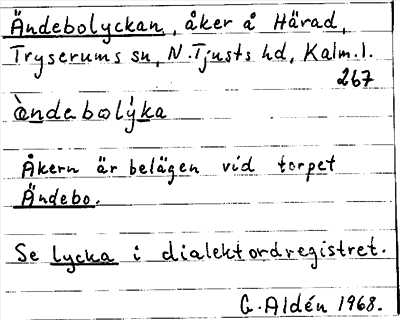 Ändebolyckan, åker å Härad,
Tryserums sn, N. Tjusts hd, Kalm. l.
267
àndebolýka
Åkern är belägen vid torpet
Ändebo.
Se lycka i dialektordregistret.
G. Aldén 1968.